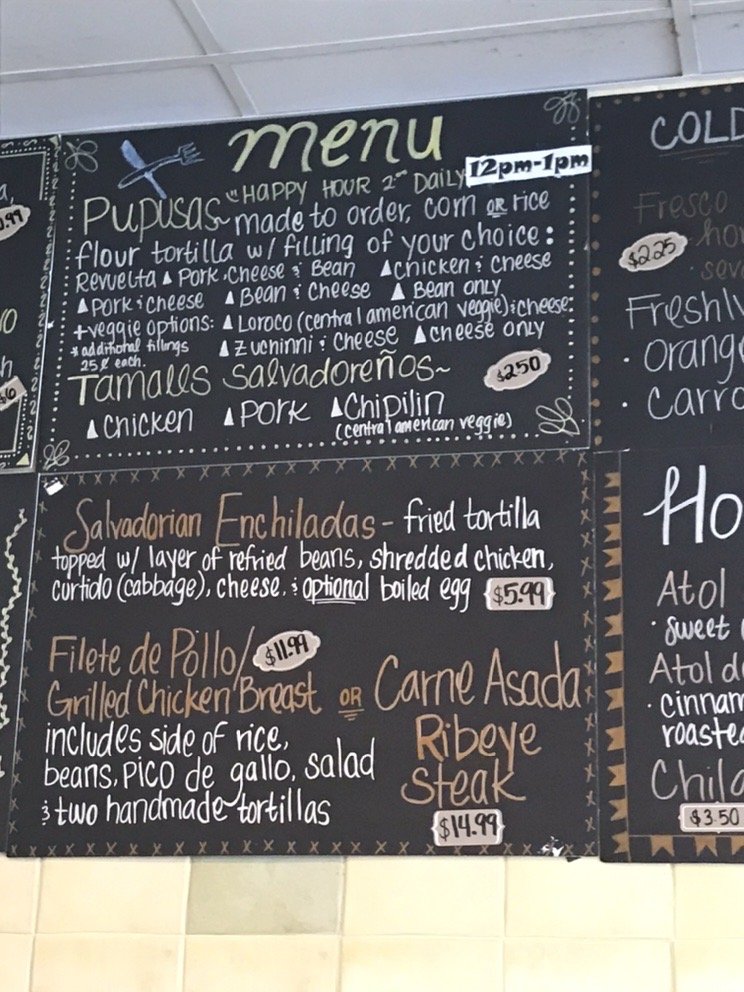 menu
12pm-1pm
"HAPPY HOUR 2" DAILY
Pupusas~ made to order, corn OR rice
flour tortilla w/ filling of your choice:
Revuelta ▲ Pork, Cheese & Bean ▲ Chicken & Cheese
▲ Pork & Cheese ▲ Bean & Cheese ▲ Bean only
+veggie options: ▲ Loroco (central american veggie) & cheese
* additional fillings ▲ Zuchinni & Cheese ▲ cheese only
25¢ each
Tamales Salvadoreños~ $2.50
▲ Chicken ▲ Pork ▲ Chipilin
(central american veggie)
Salvadorian Enchiladas - fried tortilla
topped w/ layer of refried beans, shredded chicken,
curtido (cabbage), cheese, & optional boiled egg $5.99
Filete de Pollo/ $11.99
Grilled Chicken Breast OR Carne Asada
Ribeye
Steak
$14.99
includes side of rice,
beans, pico de gallo, salad
& two handmade tortillas
COLD
Fresco
$2.25
Freshly
· orang
· carro
Ho
Atol
· sweet
Atol d
· cinnam
roaste
Chila
$3.50